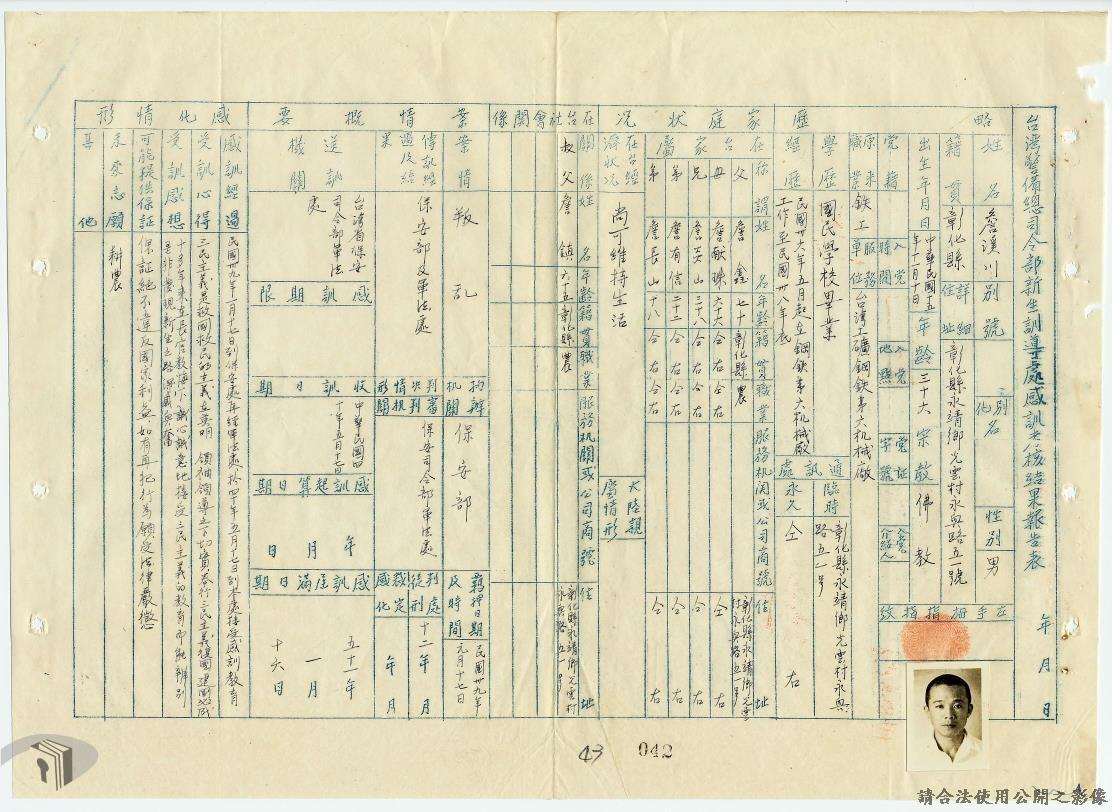 台灣警備總司令部新生訓導處感訓考核結果報告表
年 月 日
略
姓名 詹溪川 別號 別名 化名 性別 男
籍貫 彰化縣 詳細住址 彰化縣永靖鄉光雲村永興路五一號
出生年月日 中華民國十五年十一月十日 年齡 三十六 宗教 佛教
黨籍 入黨時間 入黨地點 黨証字號 入黨介紹人 左手拇指指紋
原來職業 鐵工 服務單位 台灣工礦鋼鉄第六机械廠
學歷 國民學校畢業
經歷 民國卅六年五月起在鋼鉄第六机械廠
工作至民國卅八年底
通訊處 臨時 彰化縣永靖鄉光雲村永興
路五一號
永久 仝右
家庭狀況
在台家屬 稱謂 姓名 年齡 籍貫 職業 服務机関或公司商號 住址
父 詹 七十 彰化縣 農 彰化縣永靖鄉光雲
村永興路五一號
母 詹献珠 六十六 仝右 仝右 仝右
兄 三十八 仝右 仝右 仝右
弟 詹有信 二十二 仝右 仝右 仝右
弟 詹長山 十八 仝右 仝右 仝右
在台經濟狀況 尚可維持生活
大陸親屬情形
在台社會関係 関係 姓名 年齡 籍貫 職業 服務机関或公司商號 住址
叔父 詹鎮 六十五 彰化縣 農 彰化縣永靖鄉光雲村
永興路五一號
案情概要
案情 叛亂
拘辦机関 保安部
羈押日期及時間 民國卅九年
元月十七日
傳訊經過及結果 保安部及軍法處
審判机関 保安司令部軍法處
判決情形 判處徒刑 十二年 月
裁定感化 年 月
送訓機関 台灣省保安
司令部軍法
處
感訓期限
收訓日期 中華民國四
十年五月十七日
感訓起算日期 年 月 日
感訓屆滿日期 五十一年
一月
十六日
感化情形
感訓經過 民國卅九年一月十七日到保安處再經軍法處於四十年五月十七日到本處接受感訓教育
受訓心得 三民主義是救國救民的主義在英明 領袖領導之下切實奉行三民主義復國建國必成
受訓感想 十多年來在長官教誨下誠心誠意地接受三民主義的教育即能辨別
是非發現新生之路深感興奮
可能提供保証 保証絕不違反國家利益、如有再犯行為願受法律嚴懲
未來志願 耕農
其他
43
042
請合法使用公開之影像